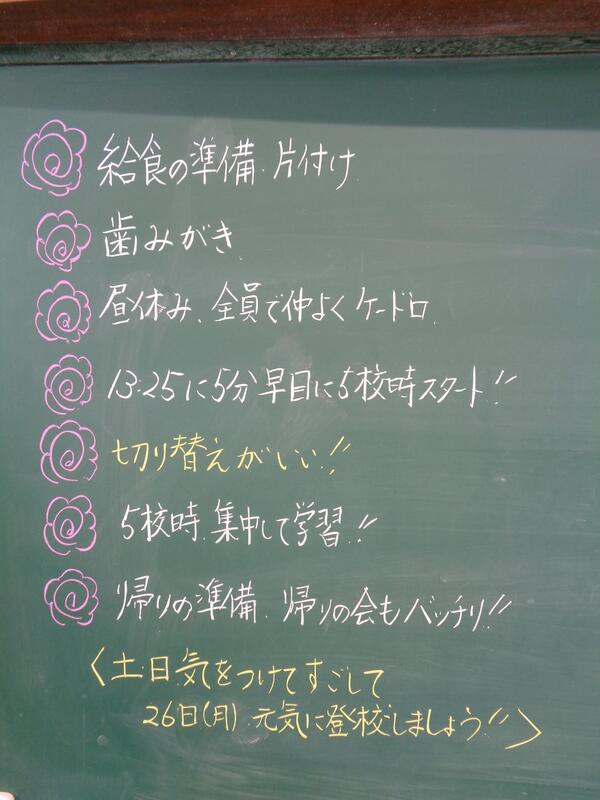 給食の準備、片付け
歯みがき
昼休み、全員で仲よくケードロ
13:25に5分早目に5校時スタート!!
切り替えがいい!!
5校時、集中して学習!!
帰りの準備、帰りの会もバッチリ!!
〈土・日気をつけてすごして
26日(月)元気に登校しましょう!!〉